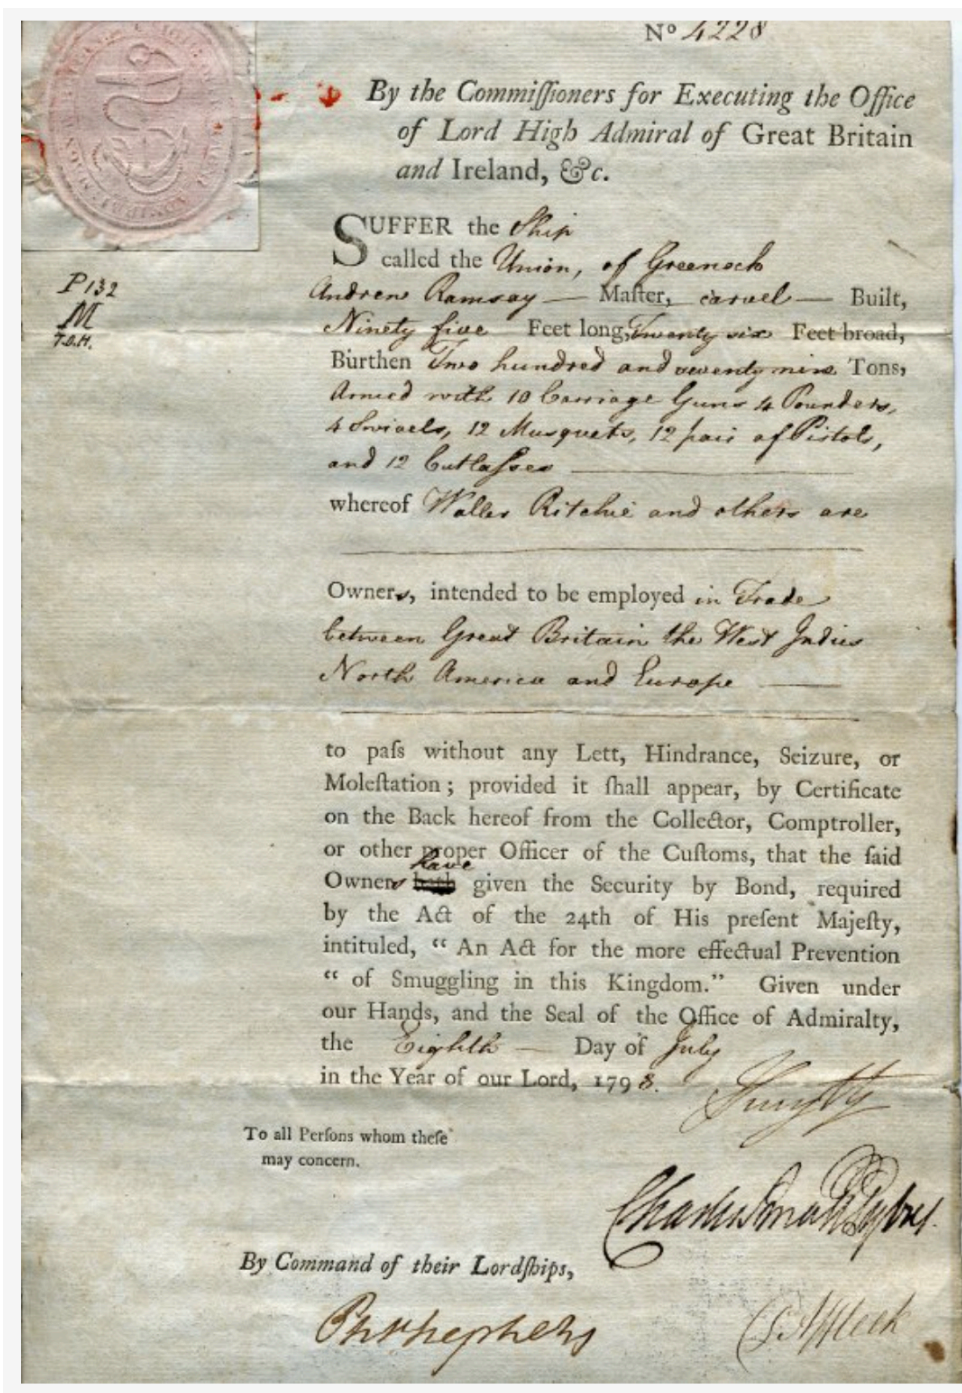 No 4228
By the Commiſſioners for Executing the Office
of Lord High Admiral of Great Britain
and Ireland, &c.
SUFFER the Ship
called the Union, of Greenock
Andrew Ramsay — Maſter, carvel — Built,
Ninety five Feet long, Twenty six Feet broad,
Burthen Two hundred and seventy nine Tons,
Armed with 10 Carriage Guns 4 Pounders,
4 Swivels, 12 Musquets, 12 pair of Pistols,
and 12 Cutlaſses
whereof Walter Ritchie and others are
Owners, intended to be employed in Trade
between Great Britain the West Indies
North America and Europe
to paſs without any Lett, Hindrance, Seizure, or
Moleſtation; provided it ſhall appear, by Certificate
on the Back hereof from the Collector, Comptroller,
or other proper Officer of the Cuſtoms, that the ſaid
Owners have given the Security by Bond, required
by the Act of the 24th of His preſent Majeſty,
intituled, “ An Act for the more effectual Prevention
“ of Smuggling in this Kingdom.” Given under
our Hands, and the Seal of the Office of Admiralty,
the Eighth — Day of July
in the Year of our Lord, 1798.
To all Perſons whom theſe
may concern.
By Command of their Lordſhips,
P 132
M
T.O.H.